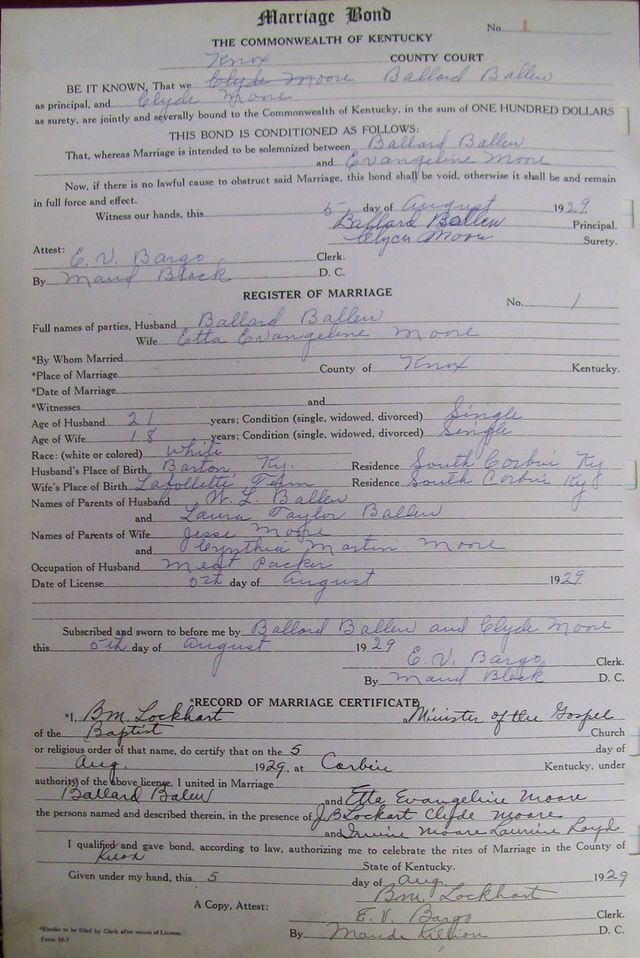 Marriage Bond
No. 1
THE COMMONWEALTH OF KENTUCKY
Knox COUNTY COURT
BE IT KNOWN, That we Clyde Moore Ballard Ballew
as principal, and Clyde Moore
as surety, are jointly and severally bound to the Commonwealth of Kentucky, in the sum of ONE HUNDRED DOLLARS
THIS BOND IS CONDITIONED AS FOLLOWS:
That, whereas Marriage is intended to be solemnized between Ballard Ballew
and Evangeline Moore
Now, if there is no lawful cause to obstruct said Marriage, this bond shall be void, otherwise it shall be and remain
in full force and effect.
Witness our hands, this 5 day of August 1929
Ballard Ballew Principal.
Moore Surety.
Attest:
E. V. Bargo Clerk.
By Maud Black D. C.
REGISTER OF MARRIAGE
No. 1
Full names of parties, Husband Ballard Ballew
Wife Etta Evangeline Moore
*By Whom Married
*Place of Marriage County of Knox Kentucky.
*Date of Marriage
*Witnesses and
Age of Husband 21 years; Condition (single, widowed, divorced) Single
Age of Wife 18 years; Condition (single, widowed, divorced) Single
Race: (white or colored) White
Husband's Place of Birth Barton, Ky. Residence South Corbin Ky
Wife's Place of Birth Lafollette Tenn Residence South Corbin Ky
Names of Parents of Husband W. L. Ballew
and Laura Taylor Ballew
Names of Parents of Wife Jesse Moore
and Cynthia Martin Moore
Occupation of Husband Meat Packer
Date of License 5th day of August 1929
Subscribed and sworn to before me by Ballard Ballew and Clyde Moore
this 5th day of August 1929
E. V. Bargo Clerk.
By Maud Black D. C.
*RECORD OF MARRIAGE CERTIFICATE
*I, BM. Lockhart a Minister of the Gospel
of the Baptist Church
or religious order of that name, do certify that on the 5 day of
Aug. 1929, at Corbin Kentucky, under
authority of the above license, I united in Marriage
Ballard Balew and Etta Evangeline Moore
the persons named and described therein, in the presence of J B Lockart Clyde Moore
and Irvine Moore Laurine Loyd
I qualified and gave bond, according to law, authorizing me to celebrate the rites of Marriage in the County of
Knox State of Kentucky.
Given under my hand, this 5 day of Aug. 1929
BM. Lockhart
A Copy, Attest: E. V. Bargo Clerk.
By Maude Killion D. C.
*Blanks to be filled by Clerk after return of License.
Form 56-7